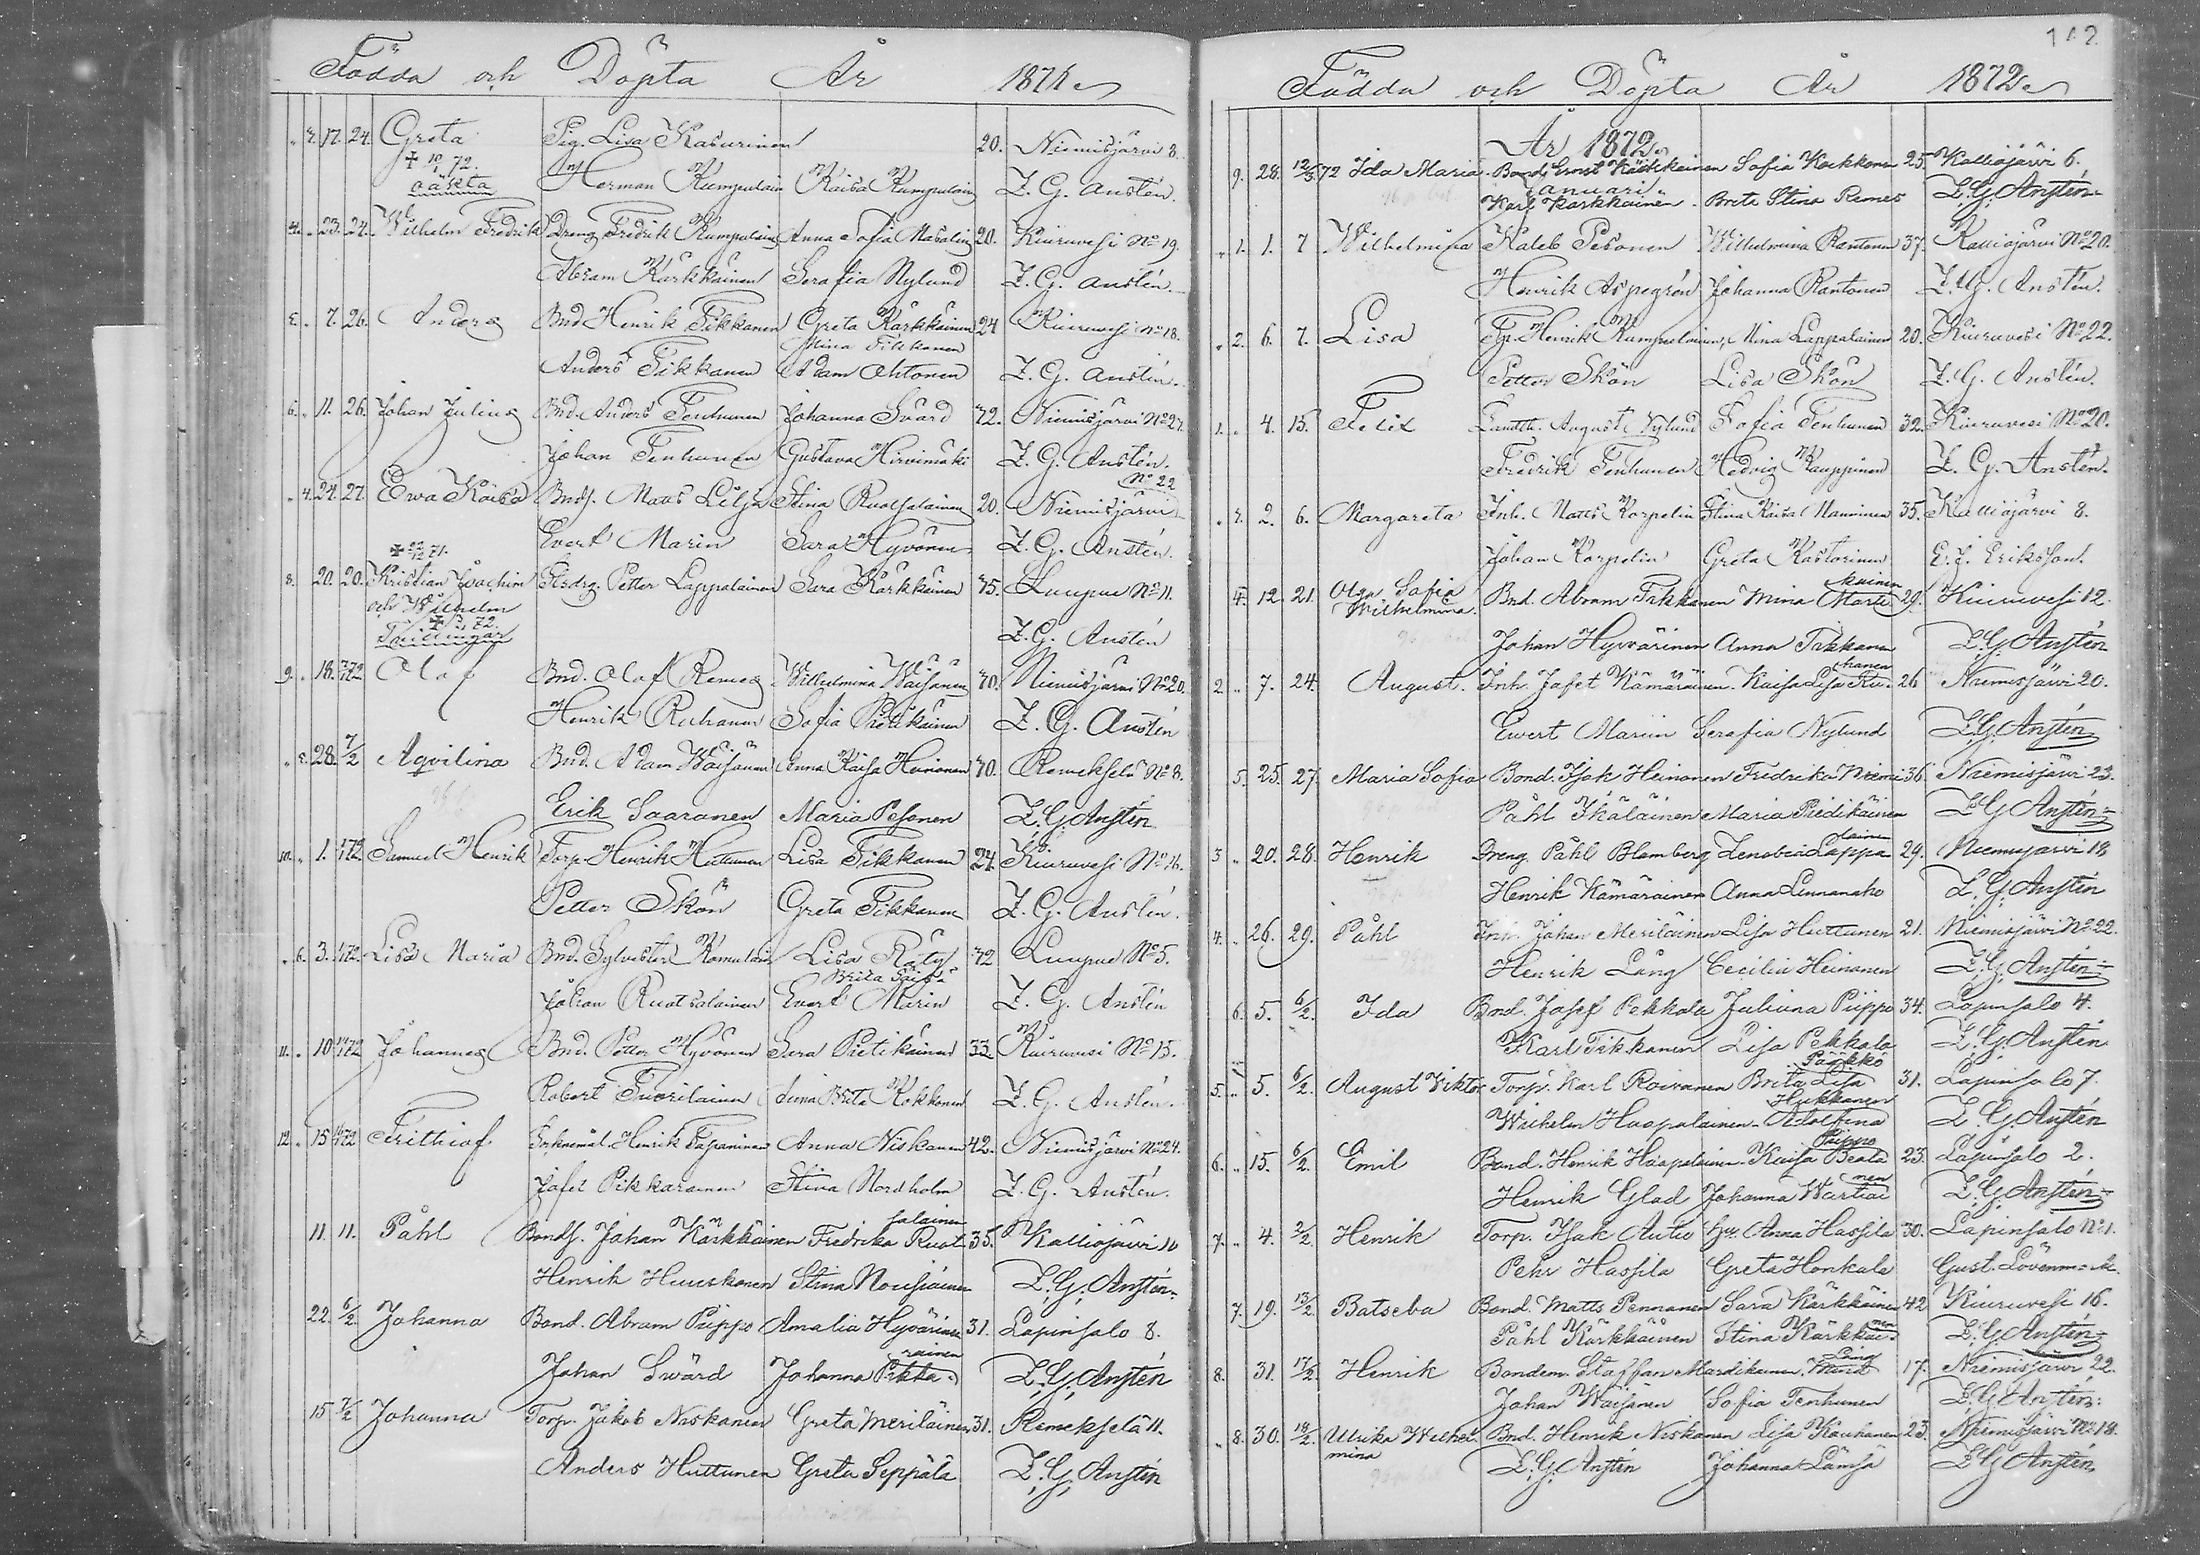 Födda och Döpta År 1871
" 2. 17. 24. Greta Pig. Lisa Kasurinen 20. Niemisjärvi 8.
+ 10/1 72. oäkta Herman Kumpulain Kaisa Kumpulain Z. G. Austén.
23. 24. Wilhelm Fredrik Dreng Fredrik Kumpulain Anna Sofia Masalin 20. Kiuruvesi No 19.
Abram Kärkkäinen Serafia Nylund Z. G. Austén
7. 26. Anders Bnd Henrik Tikkanen Greta Kärkkäinen 24 Kiuruvesi No 18.
Mina Tikkanen
Anders Tikkanen Adam Ahtonen Z. G. Austén.
6. " 11. 26. Johan Julius Bnd. Anders Tenhunen Johanna Svärd 42. Niemisjärvi No 27.
Johan Tenhunen Gustava Hirvimäki Z. G. Austén.
" 4. 24. 27. Ewa Kaisa Bndf. Matts Lilja Stina Ruotsalainen 20. Niemisjärvi No 22
Evert Marin Sara Hyvönen Z. G. Austén.
8. 20. 20. Kristian Joachim Petter Lappalainen Sara Kärkkäinen 45. Luupue No 11.
och Wilhelm
Tvillingar Z. G. Austén
9. " 18. Olof Bnd. Olof Remes Wilhelmina Wäisänen 40. Niemisjärvi No 20.
Henrik Ruhanen Sofia Pietikäinen Z. G. Austén
28. 7/2 Aqvilina Bnd. Adam Wäisänen Anna Kaisa Heinonen 40. Remeksela No 8.
Erik Saaranen Maria Pesonen Z. G. Austén
10. " 1. Samuel Henrik Torp. Henrik Huttunen Lisa Tikkanen 24 Kiuruvesi No 16.
Petter Skön Greta Tikkanen Z. G. Austén.
" 6. 3. Lisa Maria Bnd. Sylvester Komulain Lisa Räty 42 Luupue No 5.
Johan Ruotsalainen Evert Marin Z. G. Austén
11. " 10 Johannes Bnd. Petter Hyvönen Sara Pietikäinen 33. Kiuruvesi No 15.
Robert Tuorilainen Anna Brita Kokkonen Z. G. Austén.
12. " 15 Frithiof Henrik Tapaninen Anna Niskanen 42. Niemisjärvi No 24.
Jafet Pikkarainen Stina Nordholm Z. G. Austén.
11. 11. Påhl Bondf. Johan Kärkkäinen Fredrika Ruotsalainen 35. Kalliojärvi 11
Henrik Huuskonen Stina Nousiainen Z. G. Austén
22. 6/2 Johanna Bond. Abram Piippo Amalia Hyvärinen 31. Lapinsalo 8.
Johan Swärd Johanna Pikkarainen Z. G. Austén
15 7/2 Johanna Torp. Jakob Niskanen Greta Meriläinen 31. Remekselä 11.
Anders Huttunen Greta Seppälä Z. G. Austén
142
Födda och Döpta År 1872
År 1872
9. 28. 12/3 72 Ida Maria Bond. Ernst Kärkkäinen Sofia Kokkonen 25. Kalliojärvi 6.
Januari.
Karl Kärkkäinen Brita Stina Remes Z. G. Austén
" 1. 1. 7 Wilhelmina Kaleb Pesonen Wilhelmina Rantonen 37. Kalliojärvi No 20.
Henrik Aspegrén Johanna Rantonen Z. G. Austén.
" 2. 6. 7. Lisa Tp. Henrik Kumpulainen, Mina Lappalainen 20. Kiuruvesi No 22.
Petter Skön Lisa Skön Z. G. Austén.
1. " 4. 15. Felix August Nylund Sofia Tenhunen 32. Kiuruvesi No 20.
Fredrik Tenhunen Hedvig Kauppinen Z. G. Austén.
" 3. 2. 6. Margareta Inh. Matts Korpelin Stina Kaisa Manninen 35. Kalliojärvi 8.
Johan Korpelin Greta Kastorinen E. J. Eriksson.
4. 12. 21. Olga Sofia Wilhelmina Bnd. Abram Tikkanen Mina Martikainen 29. Kiuruvesi 12.
Johan Hyvärinen Anna Tikkanen Z. G. Austén
2. " 7. 24. August. Inh. Jafet Kämäräinen. Kaisa Lisa Ruhanen 26 Niemisjärvi 20.
Ewert Marin Serafia Nylund Z. G. Austén
5. 25. 27. Maria Sofia Bond. Isak Heinonen Fredrika Niemi 36. Niemisjärvi 23.
Påhl Ikäläinen Maria Pietikäinen Z. G. Austén
3 " 20. 28. Henrik Dreng. Påhl Blomberg Zenobia Lappalainen 29. Niemisjärvi 18
Henrik Kämäräinen Anna Linnanaho Z. G. Austén
4. " 26. 29. Påhl Inh. Johan Meriläinen Lisa Huttunen 21. Niemisjärvi No 22.
Henrik Lång Cecilia Heinonen Z. G. Austén
6. 5. 6/2. Ida Bond. Josef Pekkala Juliana Piippo 34. Lapinsalo 4.
Karl Tikkanen Lisa Pekkala Z. G. Austén
5. " 5. 6/2. August Viktor Torp. Karl Roivanen Brita Lisa Pääkkö 31. Lapinsalo 7.
Wilhelm Haapalainen. Adolfina Hukkanen Z. G. Austén
6. " 15. 6/2. Emil Bond. Henrik Haapalainen. Kaisa Beata Piippo 23. Lapinsalo 2.
Henrik Glad Johanna Wartiainen Z. G. Austén
7. " 4. 2/2. Henrik Torp. Isak Autio Anna Hassila 30. Lapinsalo No 1.
Pehr Hassila Greta Honkala Gust. Lövenmark.
7. 19. 13/2. Batseba Bond. Matts Pennanen Sara Kärkkäinen 42 Kiuruvesi 16.
Påhl Kärkkäinen Stina Kärkkäinen Z. G. Austén
8. 31. 17/2. Henrik Bondem. Staffan Mardikainen 17. Niemisjärvi 22.
Johan Wäisänen Sofia Tenhunen Z. G. Austén.
" 8. 30. 18/2. Ulrika Wilhelmina Bnd. Henrik Niskanen Lisa Kauhanen 23. Niemisjärvi No 18.
Z. G. Austén Johanna Lämsä Z. G. Austén